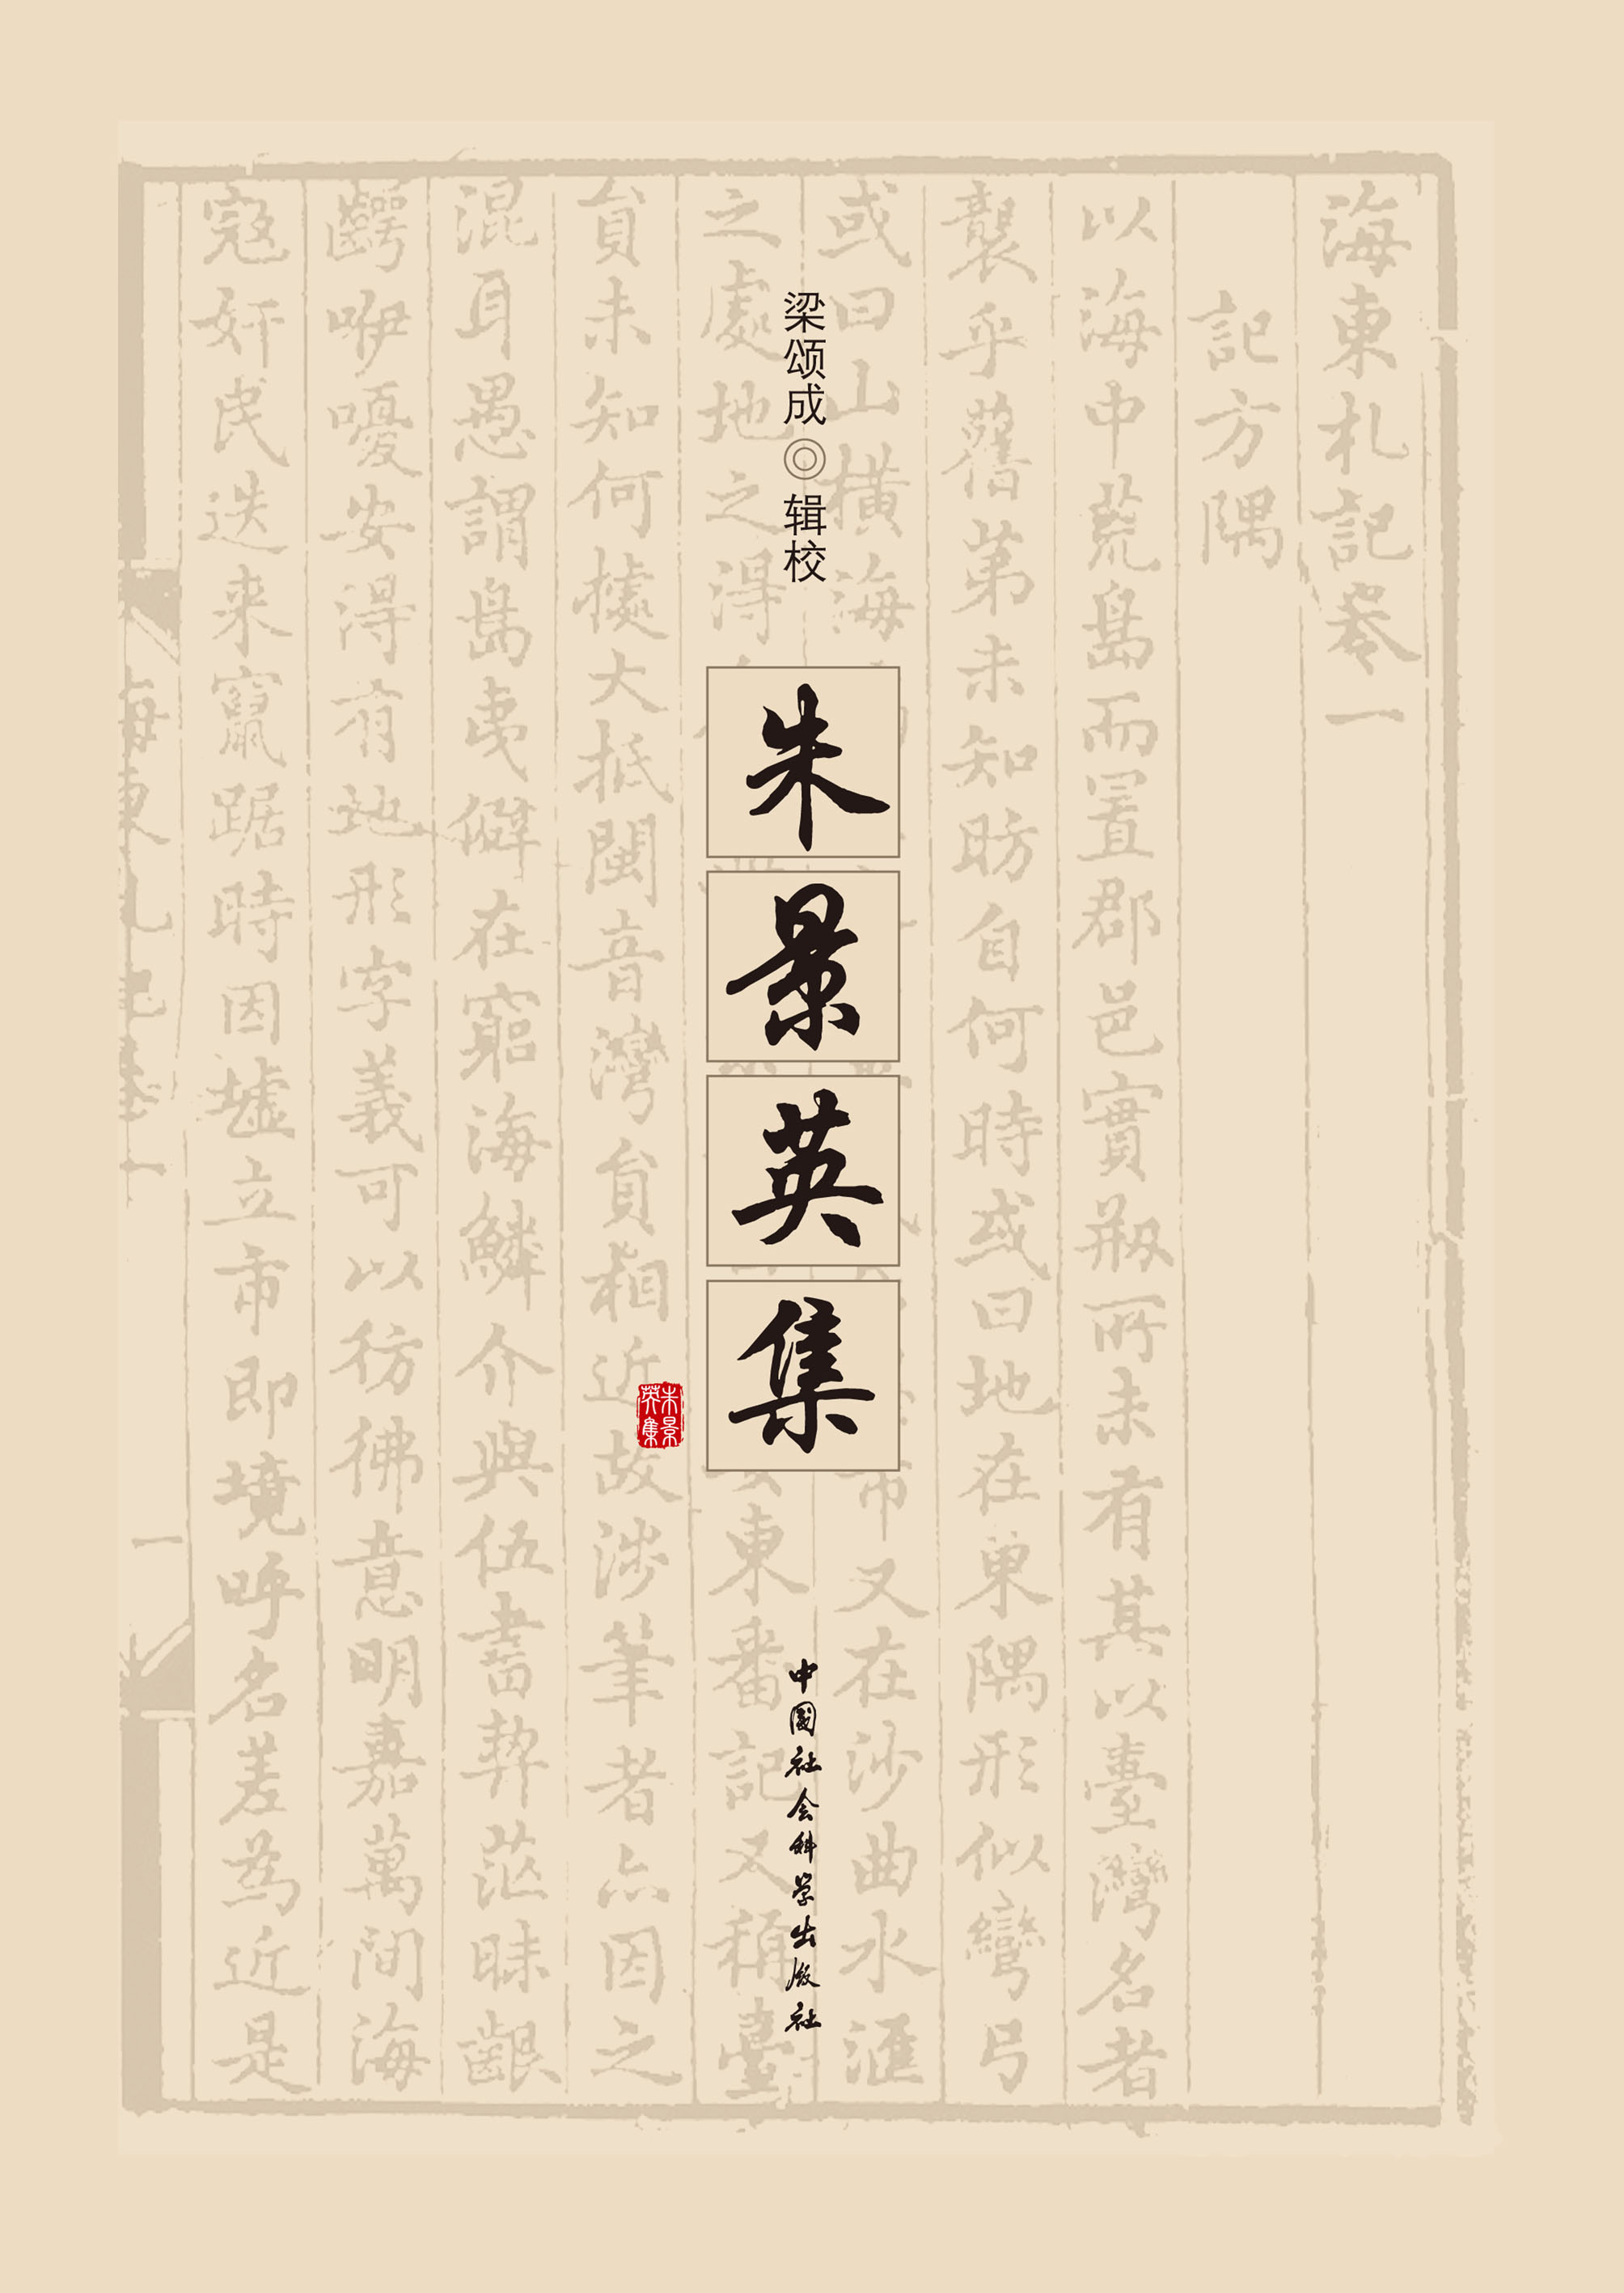 梁颂成◎辑校
朱景英集
朱景英集
中国社会科学出版社
海東札記卷一
記方隅
以海中荒島而置郡邑實刱所未有其以臺灣名者
襲乎舊第未知昉自何時或曰地在東隅形似彎弓
或曰山橫海
又在沙曲水滙
之處地之得
東番記又稱臺
員未知何據大抵閩音灣員相近故涉筆者亦因之
混身愚謂島夷僻在窮海鱗介與伍書契茫昧齦
齶咿嚘安得有地形字義可以彷彿意明嘉萬間海
寇奸民迭来竄踞時因墟立市即境呼名差為近是
海東札記卷一
一